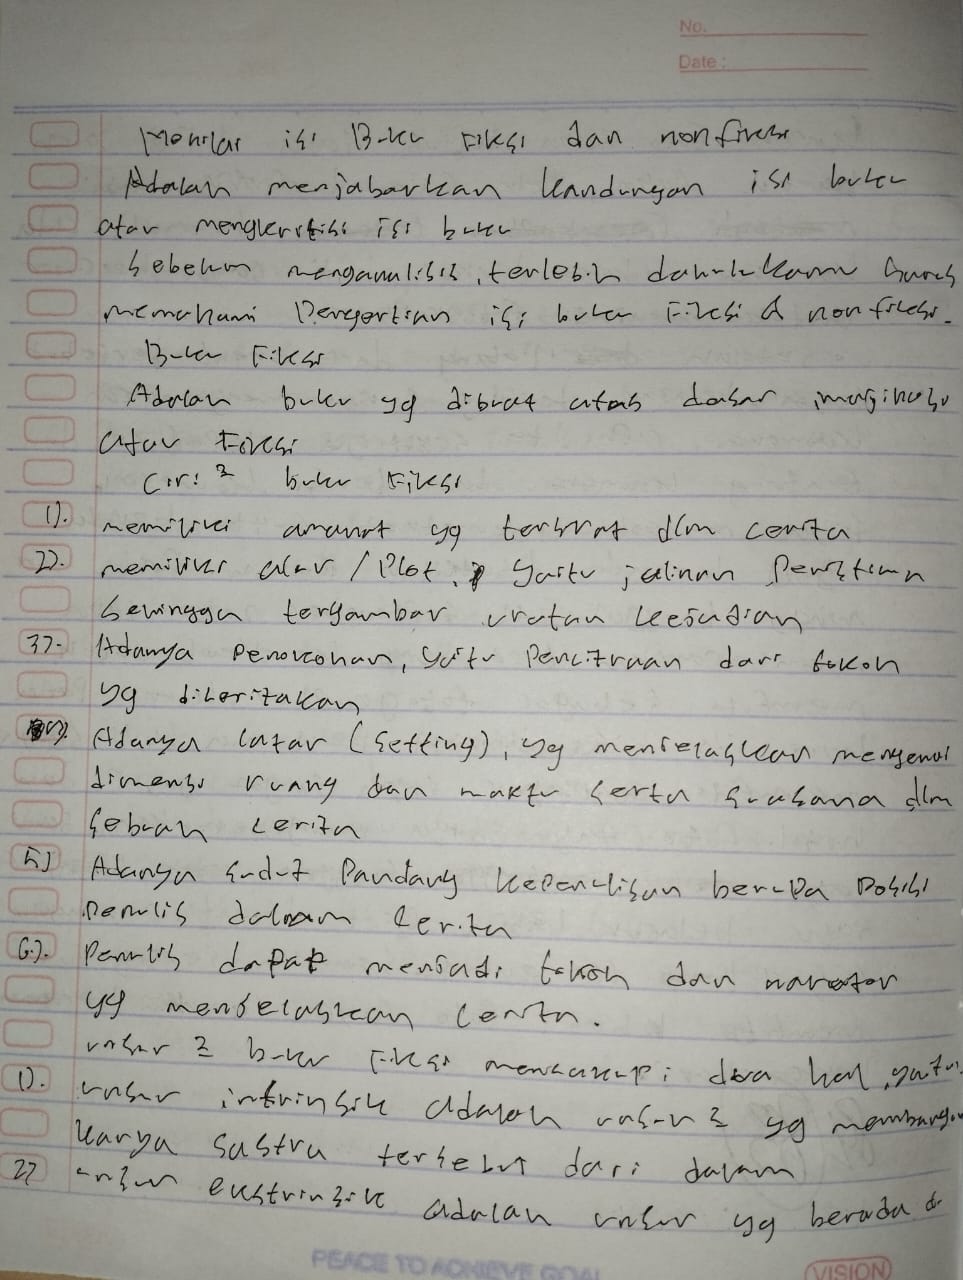 No.
Date :
Menilai isi Buku Fiksi dan nonfiksi
Adalah menjabarkan kandungan isi buku
atau mengkritisi isi buku
Sebelum menganalisis, terlebih dahulu kamu harus
memahami Pengertian isi buku Fiksi & nonfiksi.
Buku Fiksi
Adalah buku yg dibuat atas dasar imaginasi
atau Fiksi
Ciri 2 buku Fiksi
1). memiliki amanat yg tersirat dlm cerita
2). memiliki alur / Plot, yaitu jalinan Peristiwa
Sehingga tergambar urutan kejadian
3). Adanya Penokohan, yaitu Pencitraan dari tokoh
yg diceritakan
Adanya latar (Setting), yg menjelaskan mengenai
dimensi ruang dan waktu serta suasana dlm
Sebuah cerita
5) Adanya sudut Pandang kepenulisan berupa Posisi
Penulis dalam cerita
6.). Penulis dapat menjadi tokoh dan narator
yg menjelaskan cerita.
unsur 2 buku Fiksi mencakupi dua hal, yaitu
1). unsur intrinsik adalah unsur 2 yg membangun
karya sastra tersebut dari dalam
2) unsur ekstrinsik adalah unsur yg berada di
PEACE TO ACHIEVE GOAL
VISION